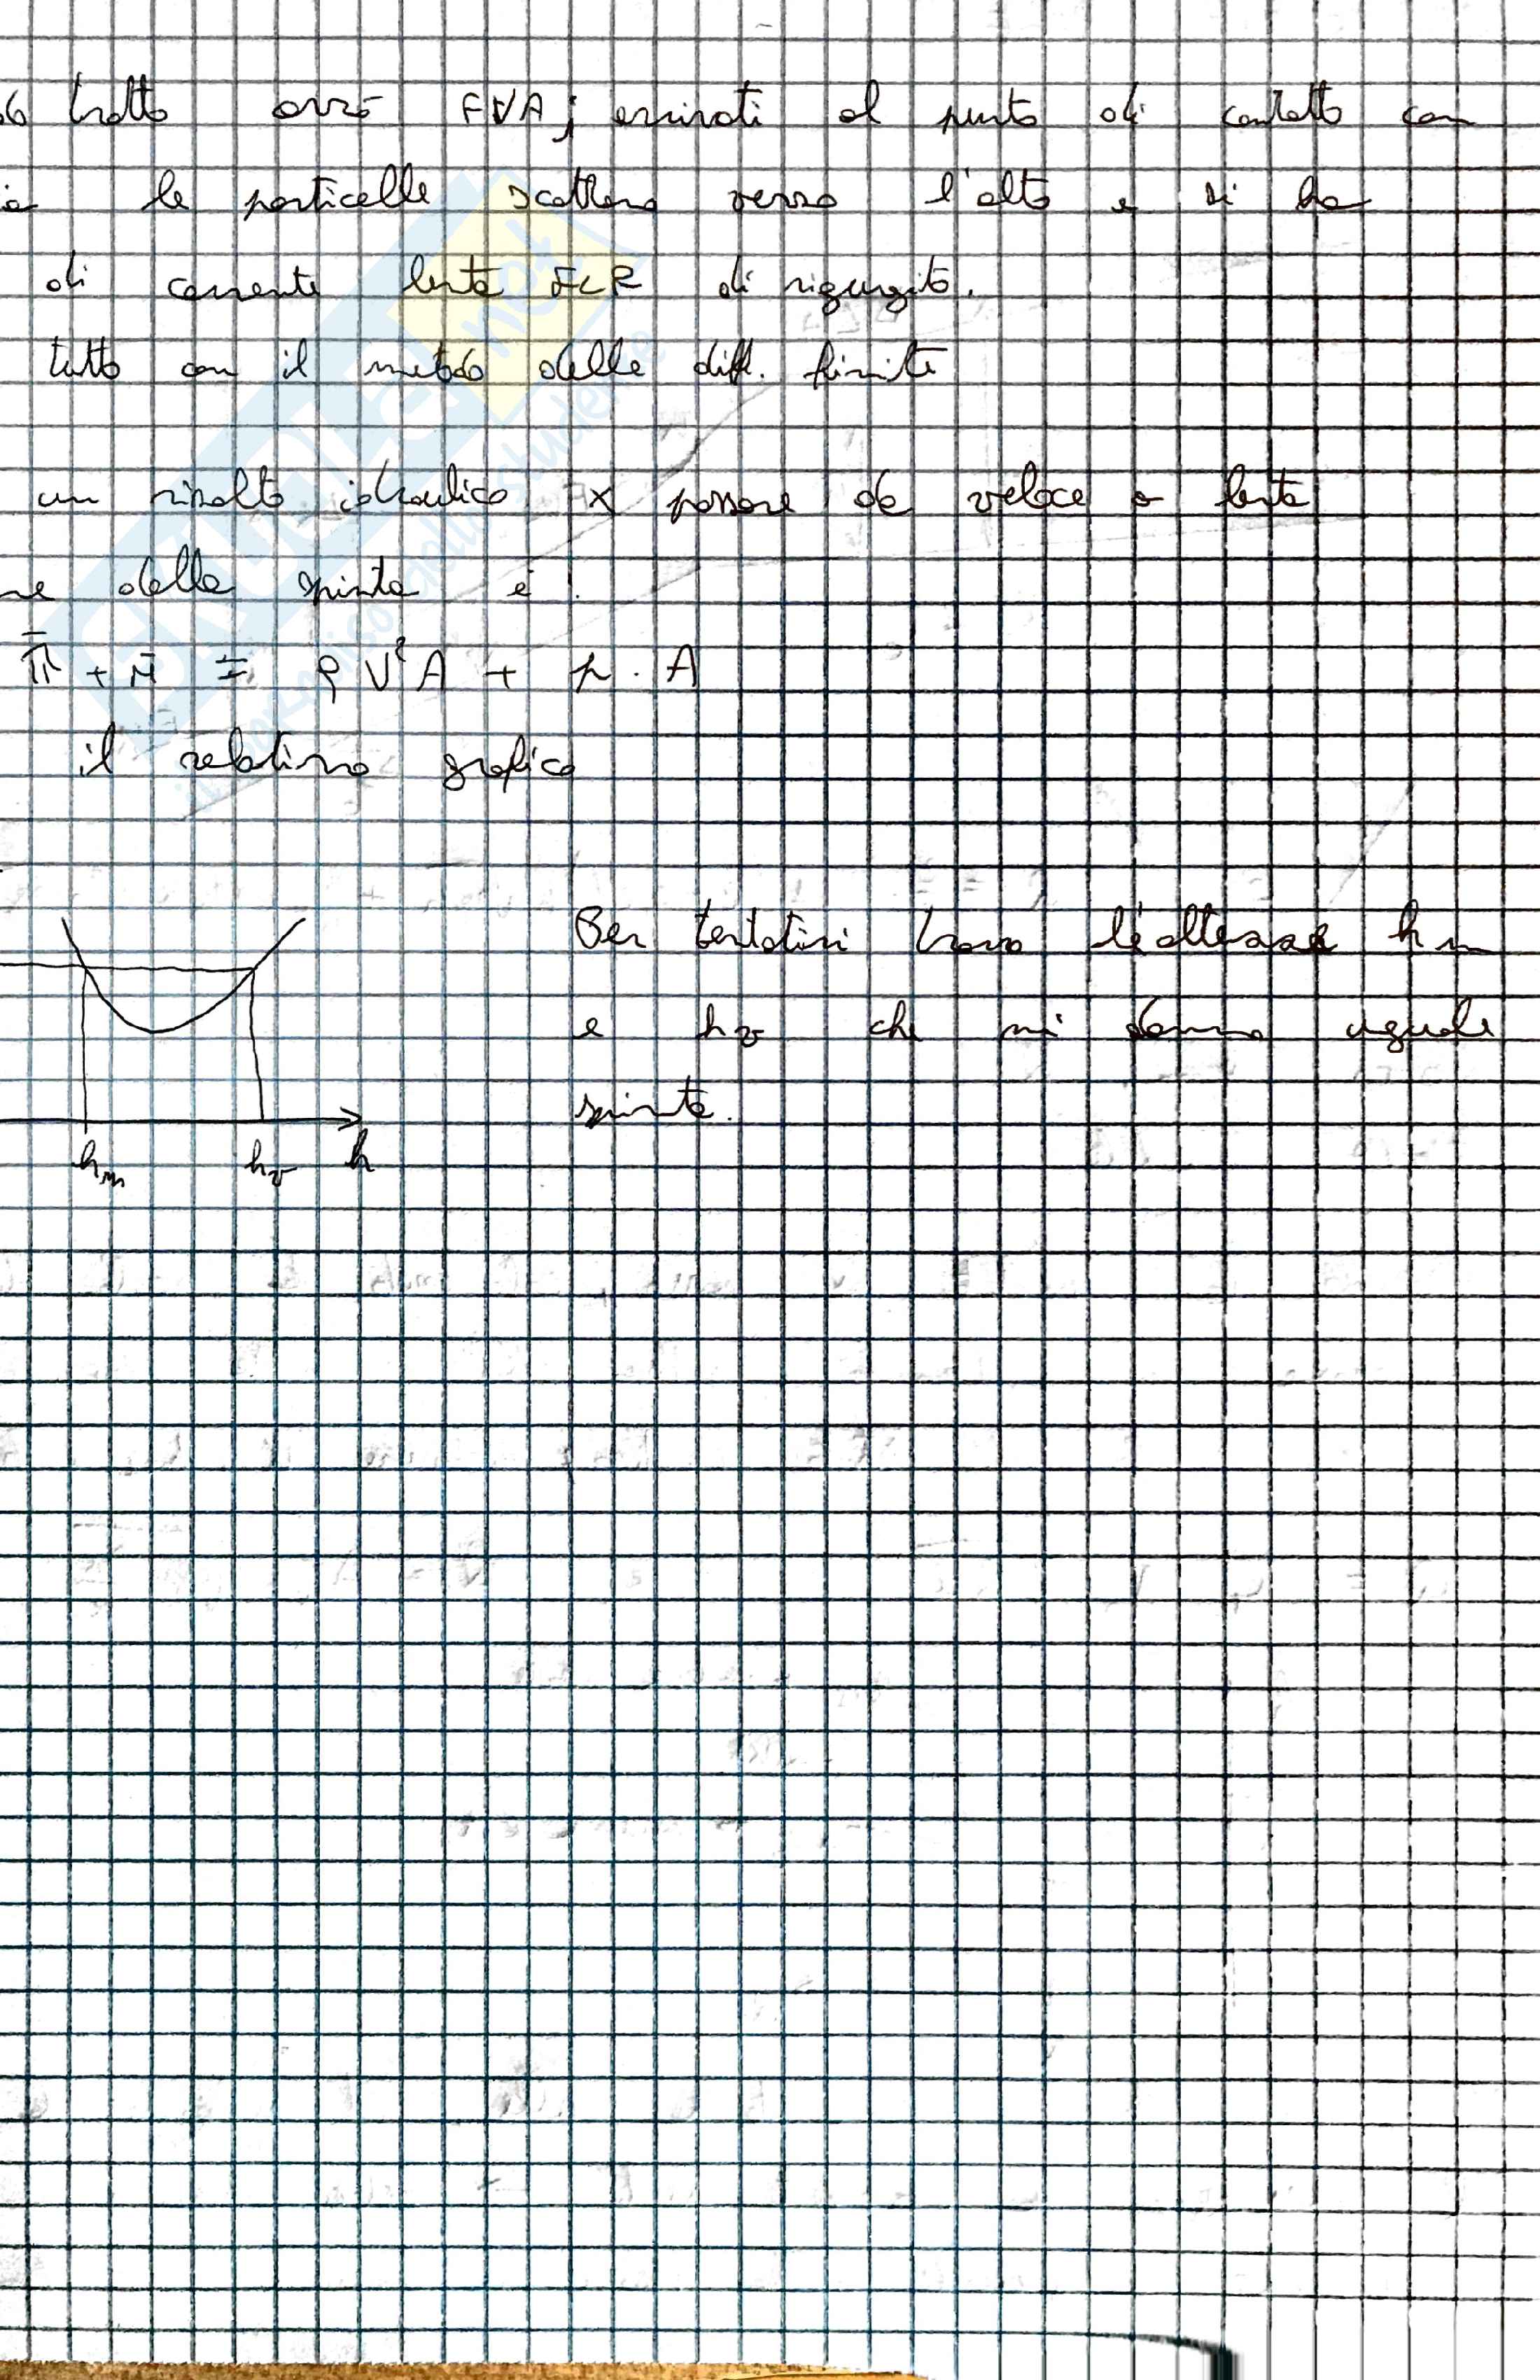 tratto avrò FVA; arrivati al punto di contatto con
le particelle scattano verso l'alto e si ha
di corrente lenta FLR di rigurgito.
tutto con il metodo delle diff. finite
un risalto idraulico x passare da veloce a lenta
ne della spinta è:
Π + M = ρV²A + p · A
il relativo grafico
Per tentativi trovo l'altezza hm
e hv che mi danno uguale
spinta.
hm hv h